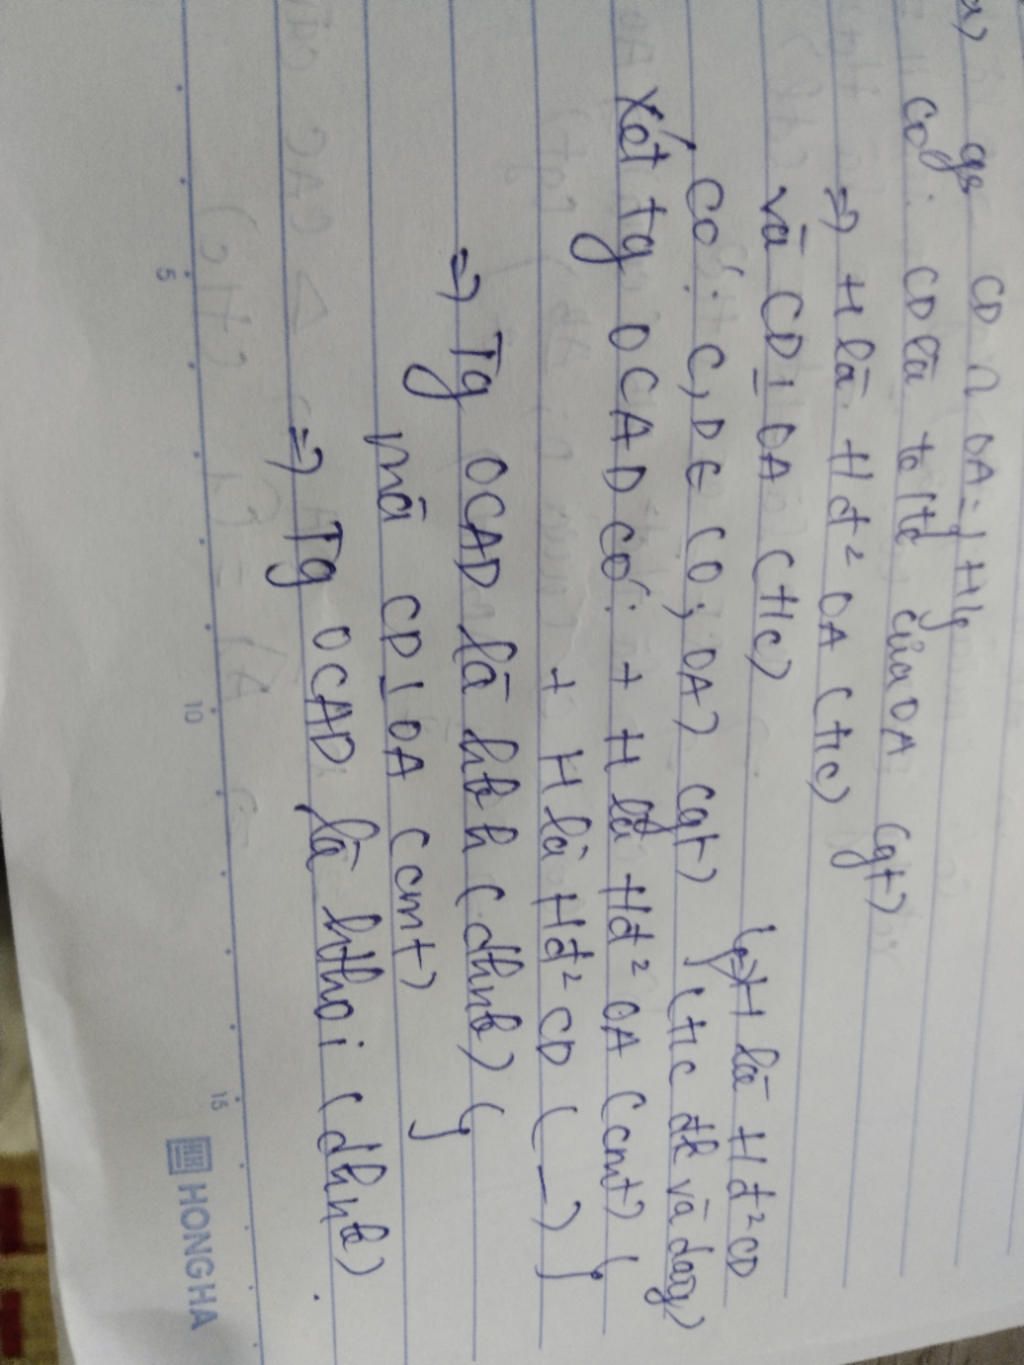 a) gs CD ∩ OA = {H}
Có: CD là tº ttđ của OA (gt)
=> H là tđ² OA (t/c)
và CD ⊥ OA (t/c)
=> H là tđ² CD
Có: C, D ∈ (O; OA) (gt) } (t/c đk và dây)
Xét tg OCAD có: + H là tđ² OA (cmt)
+ H là tđ² CD (—) }
=> Tg OCAD là hbh (dhnb)
mà CD ⊥ OA (cmt) }
=> Tg OCAD là hthoi (dhnb).
5 10 15
HONG HA